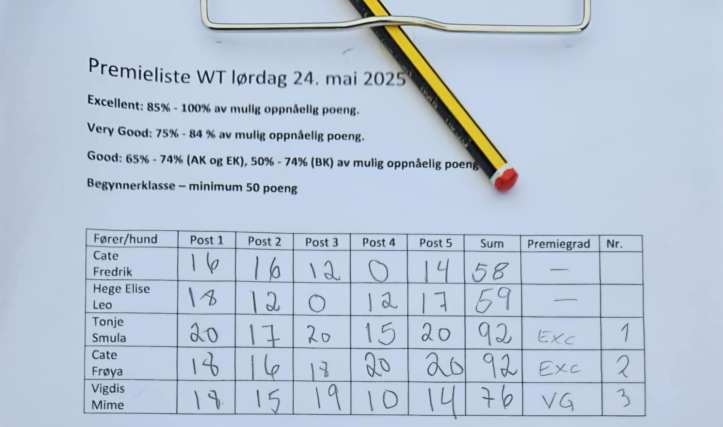 Premieliste WT lørdag 24. mai 2025
Excellent: 85% - 100% av mulig oppnåelig poeng.
Very Good: 75% - 84 % av mulig oppnåelig poeng.
Good: 65% - 74% (AK og EK), 50% - 74% (BK) av mulig oppnåelig poeng
Begynnerklasse – minimum 50 poeng
Fører/hund Post 1 Post 2 Post 3 Post 4 Post 5 Sum Premiegrad Nr.
Cate
Fredrik 16 16 12 0 14 58 —
Hege Elise
Leo 18 12 0 12 17 59 —
Tonje
Smula 20 17 20 15 20 92 Exc 1
Cate
Frøya 18 16 18 20 20 92 Exc 2
Vigdis
Mime 18 15 19 10 14 76 VG 3